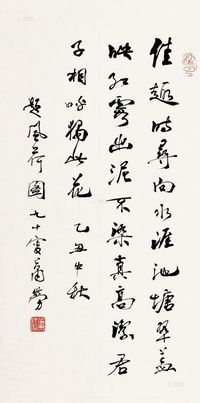 佳趣時尋向水涯池塘翠蓋
映紅霞出泥不染真高潔君
子相呼獨此花 乙丑中秋
題風荷圖 九十叟蕭勞